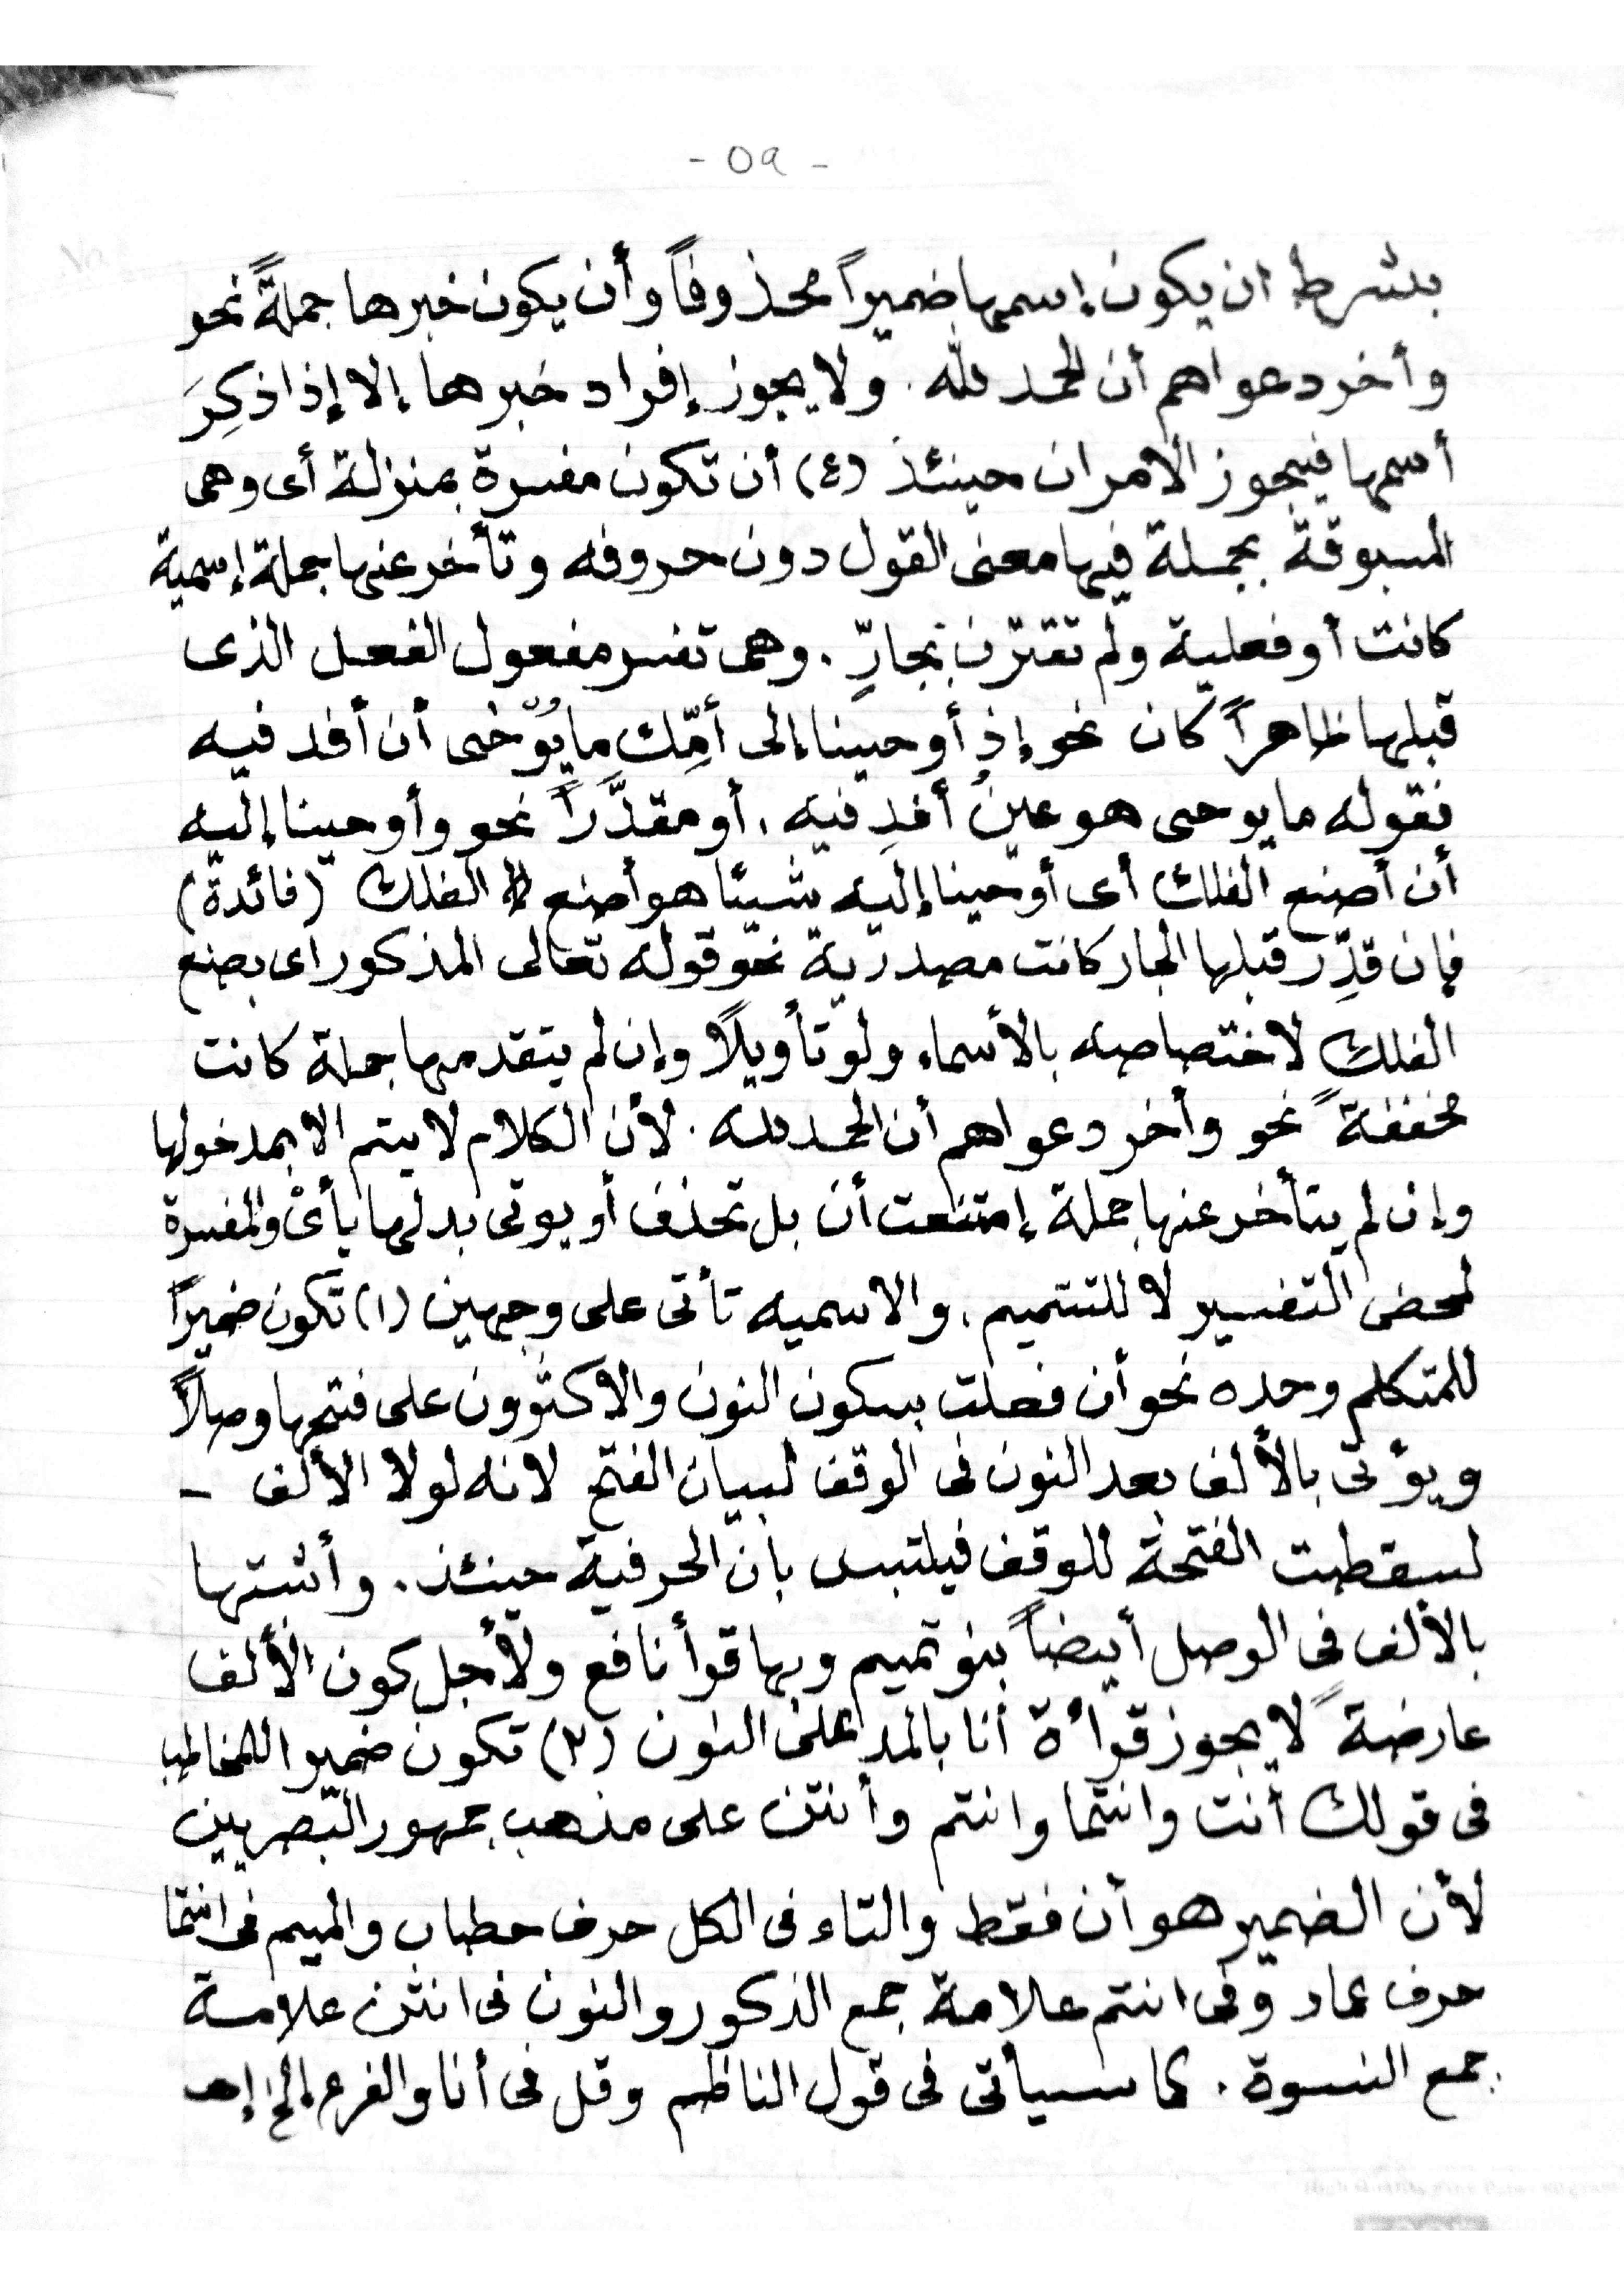 - ٥٩ -
بشرط ان يكون إسمها ضميراً محذوفاً وأن يكون خبرها جملةً نحو
وأخر دعواهم أن الحمد لله . ولا يجوز إفراد خبرها إلا إذا ذكِرَ
أسمها فيجوز الامران حينئذ (٤) أن تكون مفسرة بمنزلة أى وهى
المسبوقة بجملة فيها معنى القول دون حروفه وتأخر عنها جملة إسمية
كانت أو فعلية ولم تقترن بجارٍّ . وهى تفسر مفعول الفعل الذى
قبلها ظاهراً كان نحو إذ أوحينا إلى أمِّك ما يُوْحٰى أن أقذ فيه
فقوله ما يوحى هو عينُ أقذِ فيه . أو مقدَّراً نحو وأوحينا إليه
أن أصنع الفلك أى أوحينا إليه شيئًا هو أصنع الفلك (فائدة)
فإن قدِّر قبلها الجار كانت مصدرية نحو قوله تعالى المذكور اى بصنع
الفلك لاختصاصه بالأسماء ولو تأويلًا وإن لم يتقدمها جملة كانت
مخففةً نحو وأخر دعواهم أن الحمد لله . لأن الكلام لا يتم الا بمدخولها
وإن لم يتأخر عنها جملة إمتنعت أن بل تحذف أو يوتى بدلها بأىْ والمفسرة
لمحض التفسير لا للتتميم . والاسميه تأتى على وجهين (١) تكون ضميراً
للمتكلم وحده نحو أن فعلت بسكون النون والاكثرون على فتحها وصلاً
ويؤتى بالألف بعد النون فى الوقف لبيان الفتح لانه لولا الألف -
لسقطت الفتحة للوقف فيلتبس بأن الحرفية حينئذ . وأثبتها
بالألف فى الوصل أيضاً بنو تميم وبها قرأ نافع ولأجل كون الألف
عارضةً لا يجوز قراءة أنا بالمد على النون (٢) تكون ضميرا للمخاطب
فى قولك أنت وانتما وانتم وأنتن على مذهب جمهور البصريين
لأن الضمير هو أن فقط والتاء فى الكل حرف حطاب والميم فى انتما
حرف عماد وفى انتم علامة جمع الذكور والنون فى انتن علامة
جمع النسوة . كما سيأتى فى قول الناظم وقل فى أنا والفرع إلخ إهـ